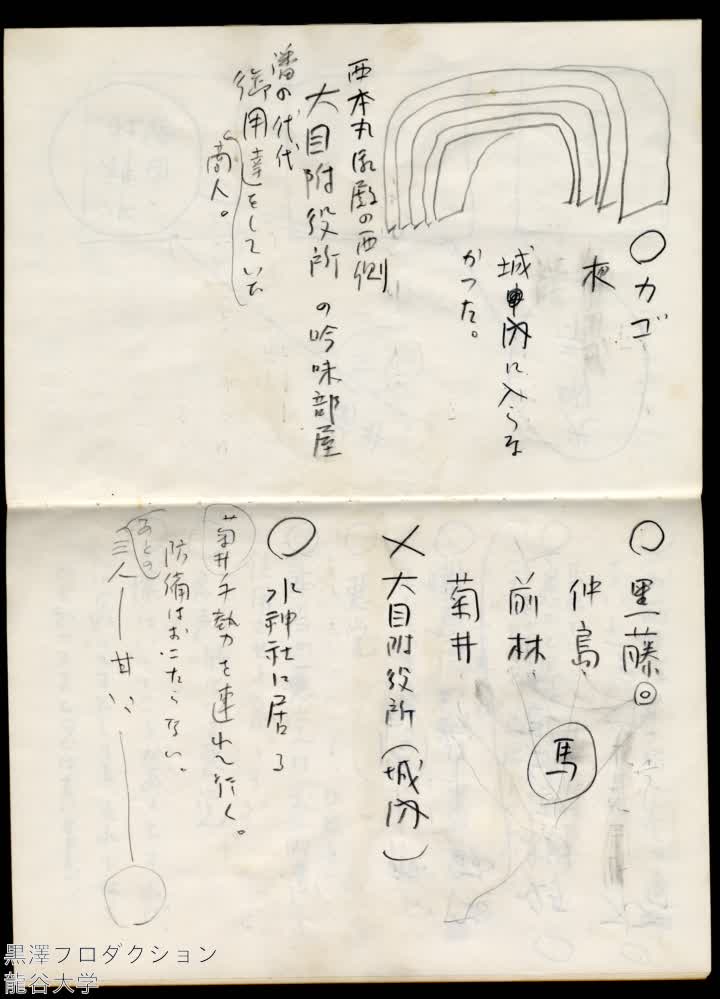 ○カゴ
夜
城内に入らな
かった。
西本丸御殿の西側
大目附役所の吟味部屋
藩の代代
御用達をしていた
商人。
○黒藤◎
仲島
前林
馬
菊井
×大目附役所(城内)
○水神社に居る
菊井手勢を連れて行く。
防備はおこたらない。
あとの
三人
黒澤プロダクション
龍谷大学